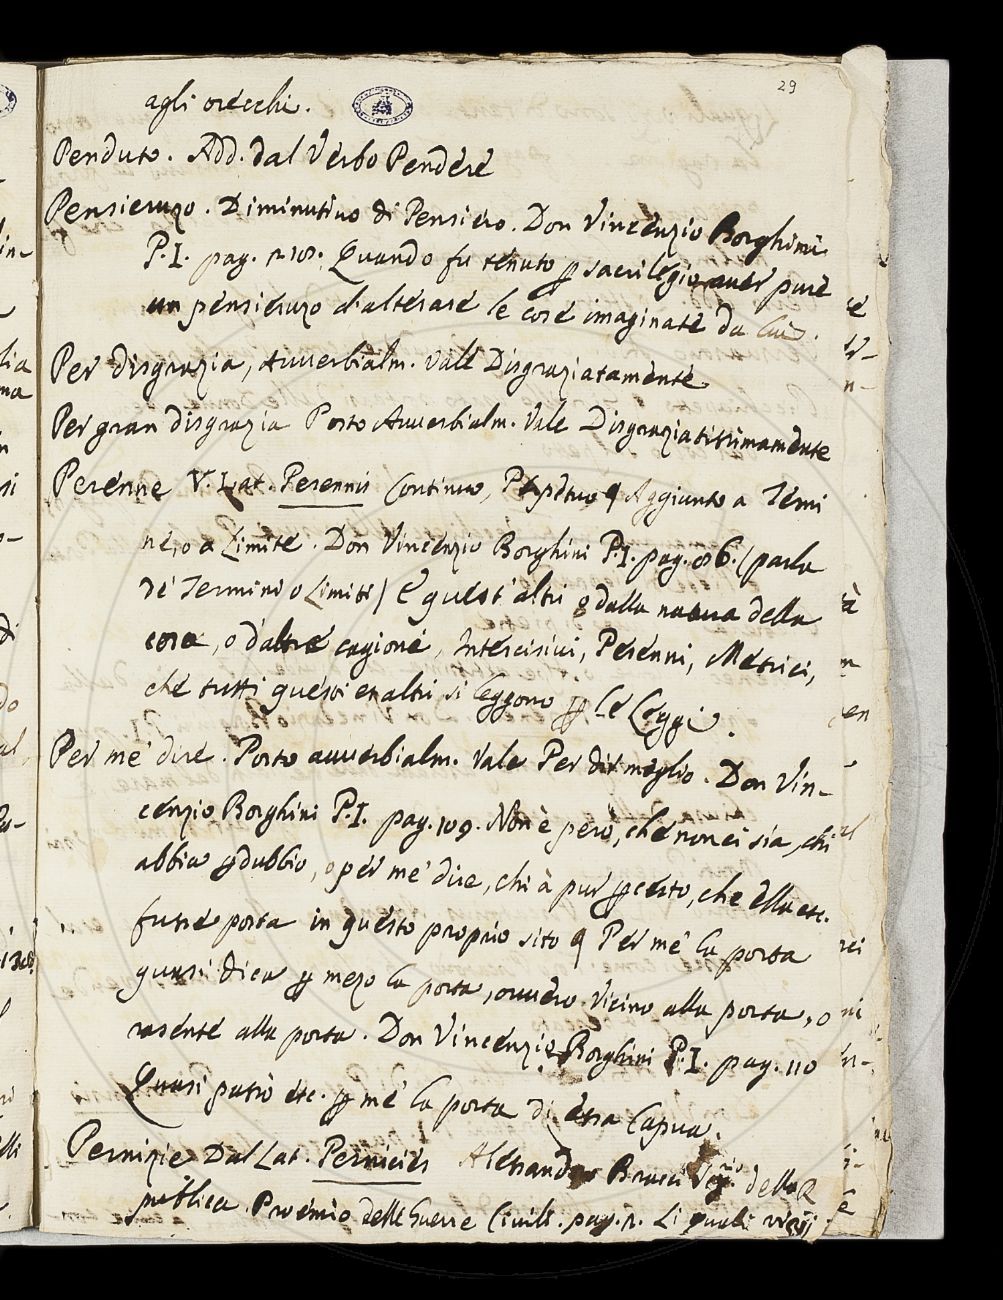 29
agli orecchi.
Penduto. Add. dal Verbo Pendere
Pensieruzo. Diminutivo di Pensiero. Don Vincenzio Borghini
P.I. pag. 218. Quando fu tenuto p sacrilegio aver pure
un pensieruzo d'alterare le cose imaginate da lui.
Per disgrazia, Avverbialm. Vale Disgraziatamente
Per gran disgrazia Posto Avverbialm. Vale Disgraziatissimamente
Perenne V. Lat. Perennis Continuo, Perpetuo Aggiunto a Termi
ne, o a Limite. Don Vincenzio Borghini P.I. pag. 86. (parla
de' Termini o Limiti) E quest' altri o dalla natura della
cosa, o d'altre cagione, Intercisivi, Perenni, Metrici,
che tutti questi et altri si leggono p le Leggi.
Per me' dire. Posto avverbialm. Vale Per dir meglio. Don Vin-
cenzio Borghini P.I. pag. 109. Non è pero, che non ci sia, chi
abbia p dubbio, o per me' dire, chi à pur p certo, che ella etc.
fusse posta in questo proprio sito Per me' la porta
quasi dica p mezo la porta, ovvero Vicino alla porta, o
rasente alla porta. Don Vincenzio Borghini P.I. pag. 110
Quasi patiò etc. p me' la porta di essa Capua.
Pernizie Dal Lat. Pernicies Alessandro Bracci della R
publica Proemio delle Guerre Civili. pag. 2. Li quali vizij